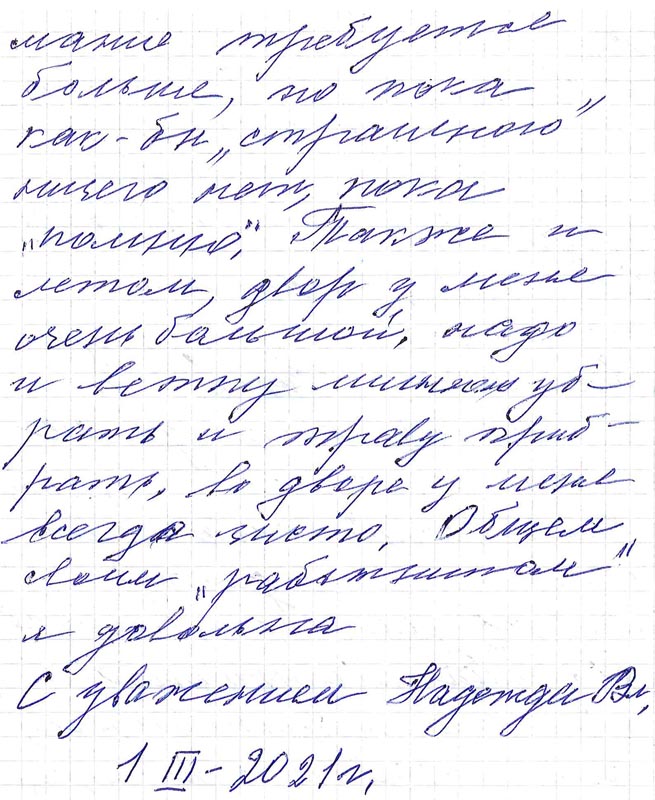 мание требуется
больше, но пока
как-бы „страшного”
ничего нет, пока
„помню”, Также и
летом, двор у мене
очень большой, надо
и ветку уб-
рать и траву приб-
рать, во дворе у мене
всегда чисто, Общем
своим „работником”
я довольна
С уважением Надежда Вл,
1 III-2021г,